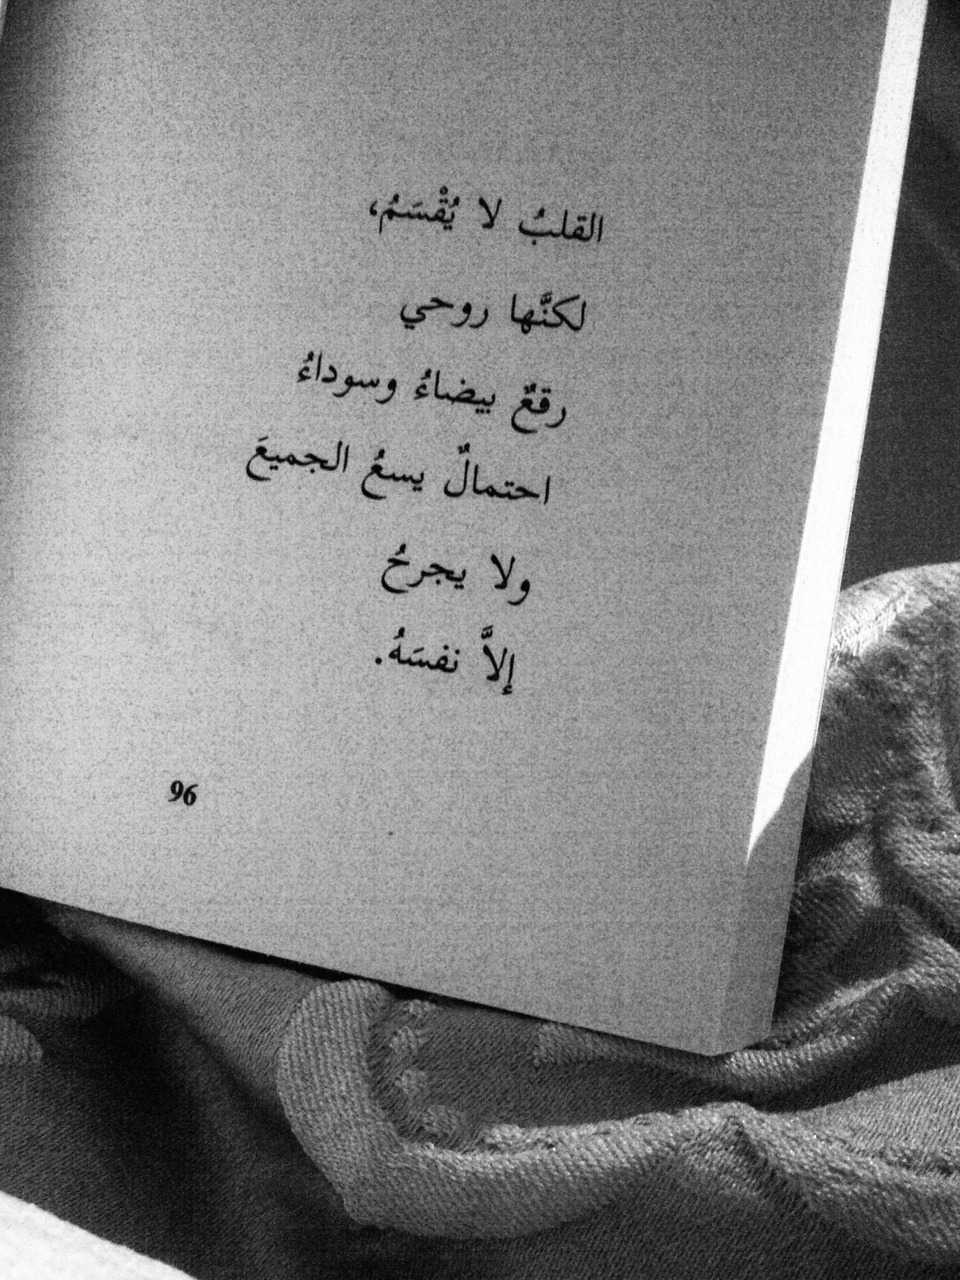 القلبُ لا يُقْسَمُ،
لكنَّها روحي
رقعٌ بيضاءُ وسوداءُ
احتمالٌ يسعُ الجميعَ
ولا يجرحُ
إلاَّ نفسَهُ.
96